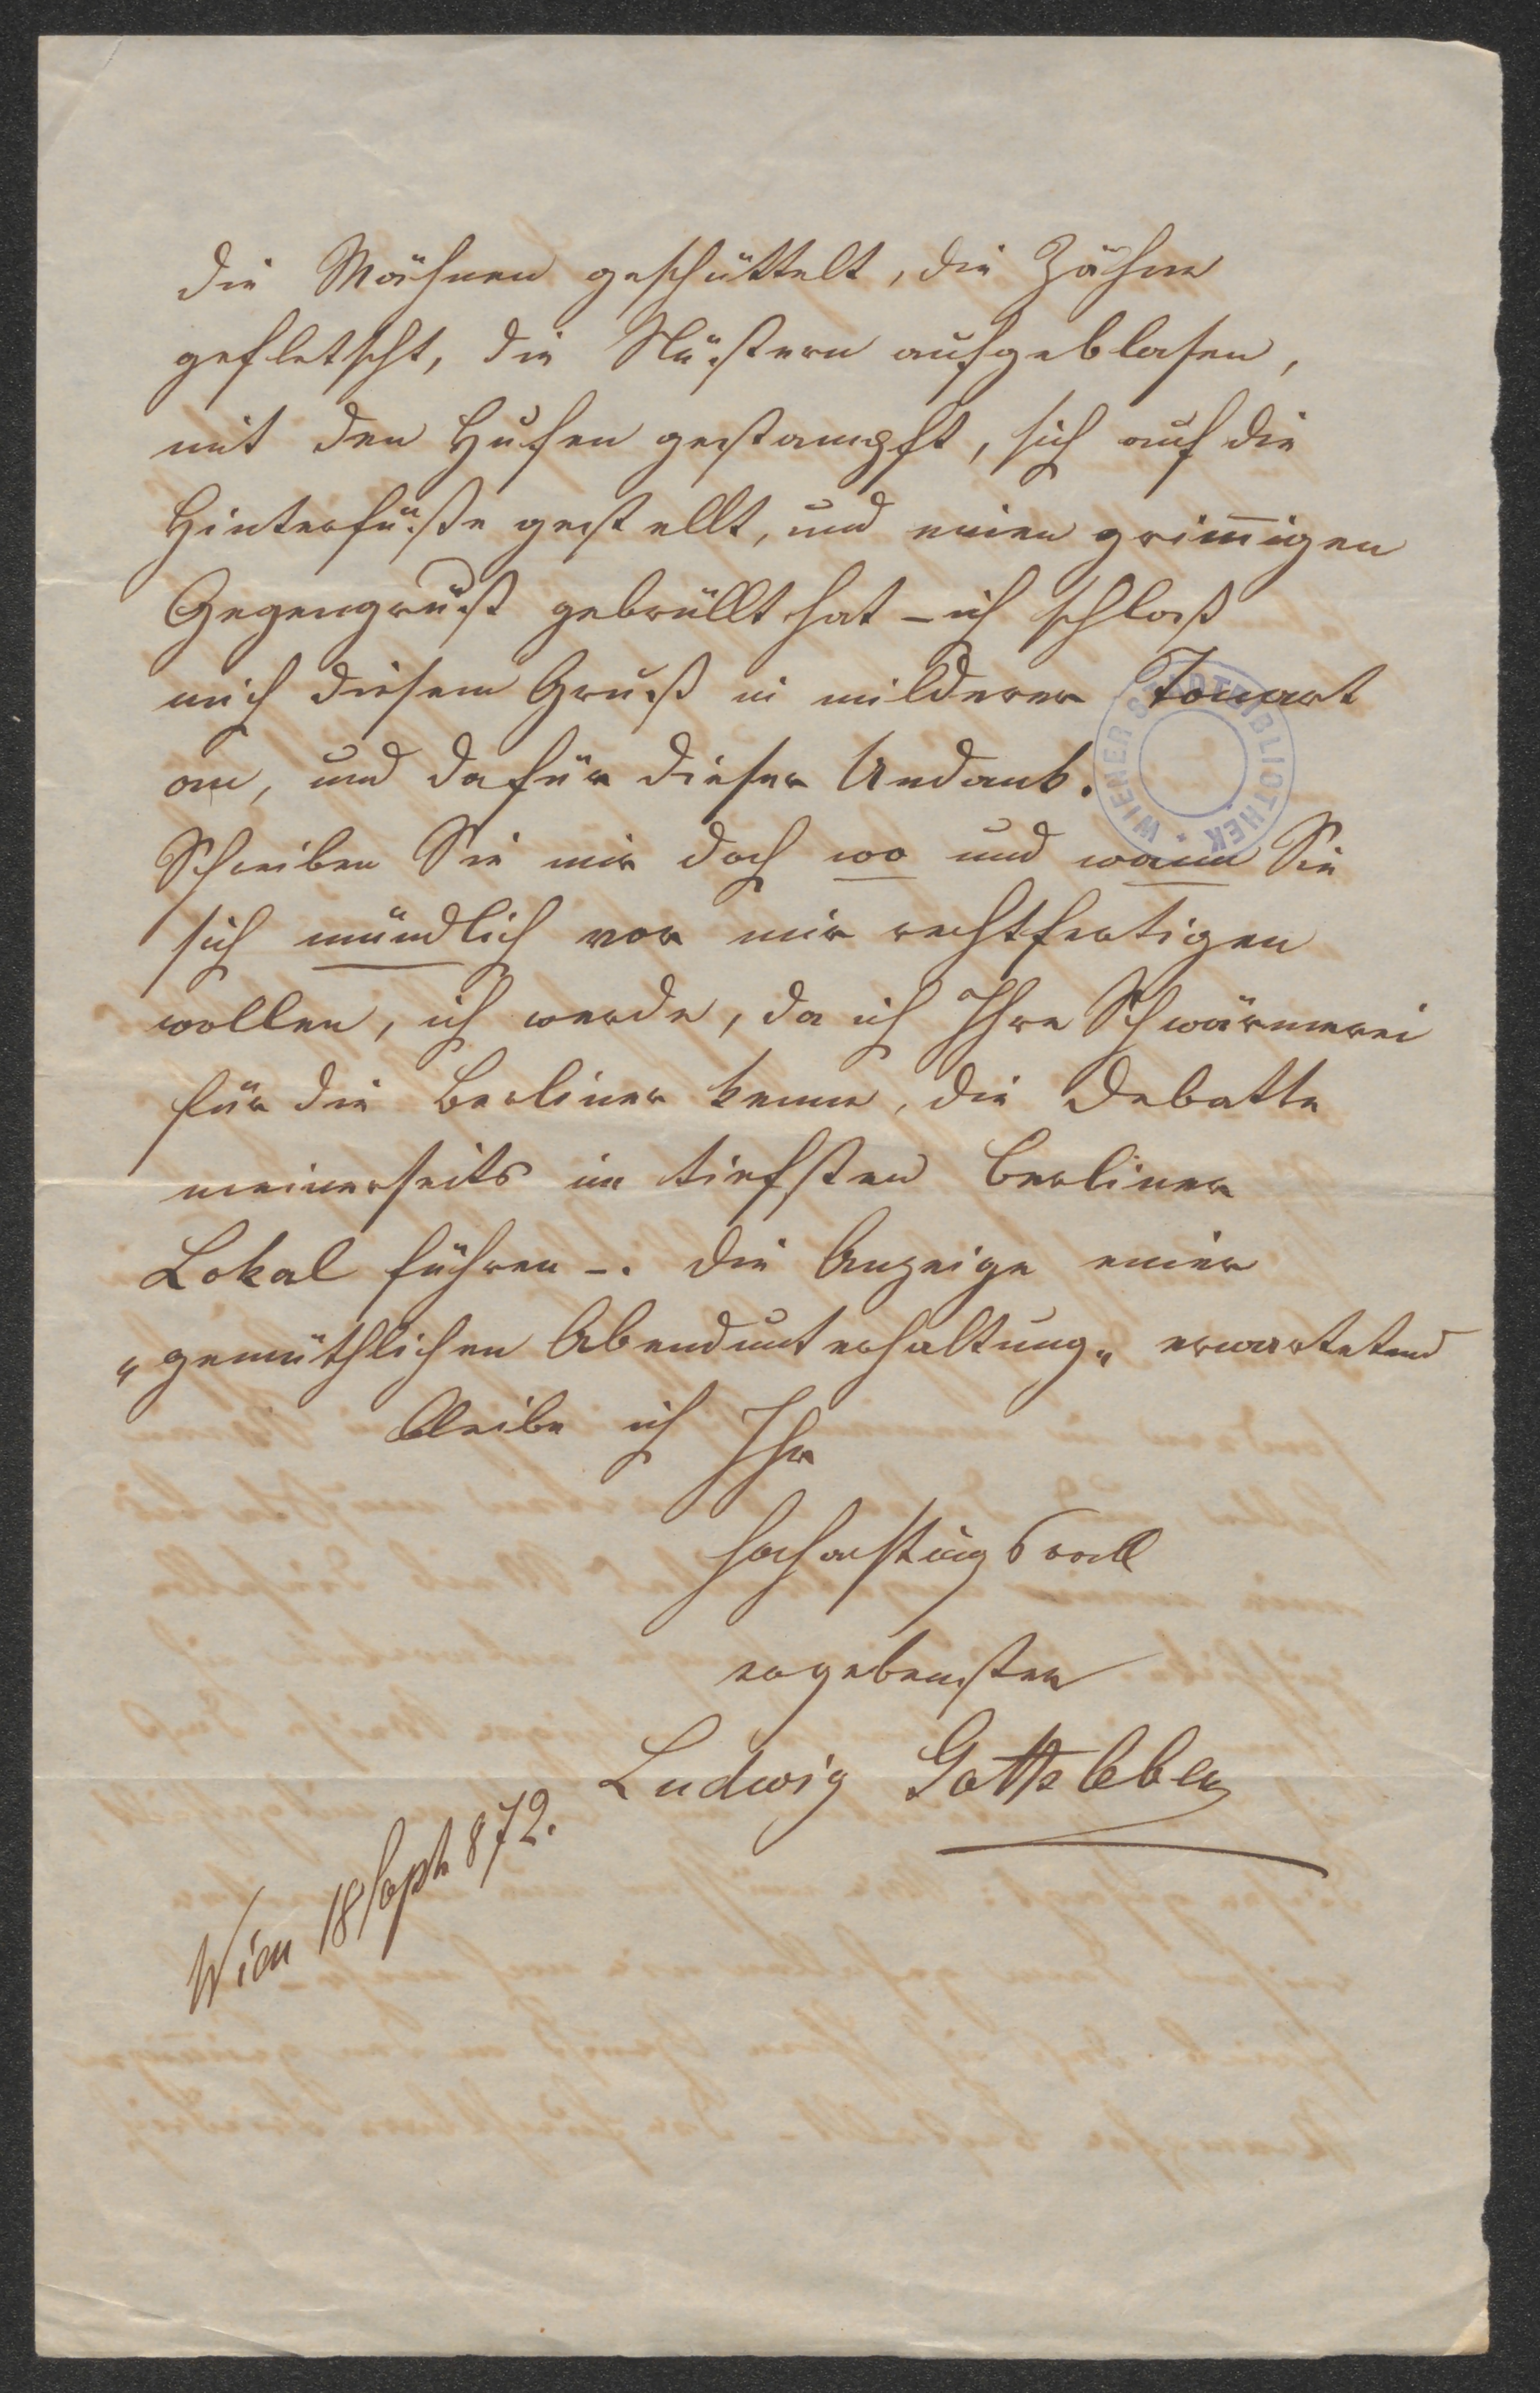 die Mähnen geschüttelt, die Zähne
gefletscht, die Nüstern aufgeblasen,
mit den Hufen gestampft, sich auf die
Hinterfüße gestellt, und einen grim̄igen
Gegengruß gebrüllt hat – ich schloß
mich diesem Gruß in milderer Tonart
an, und dafür dieser Undank.
Schreiben Sie mir doch wo und wann Sie
sich mündlich vor mir rechtfertigen
wollen, ich werde, da ich Ihre Schwärmerei
für die Berliner kenne, die Debatte
meinerseits im tiefsten Berliner
Lokal führen –. Die Anzeige einer
„gemüthlichen Abendunterhaltung„ erwartetend
bleibe ich Ihr
hochachtungsvoll
ergebenster
Ludwig Gottsleben
Wien 18 Sept 872.
WIENER STADTBIBLIOTHEK